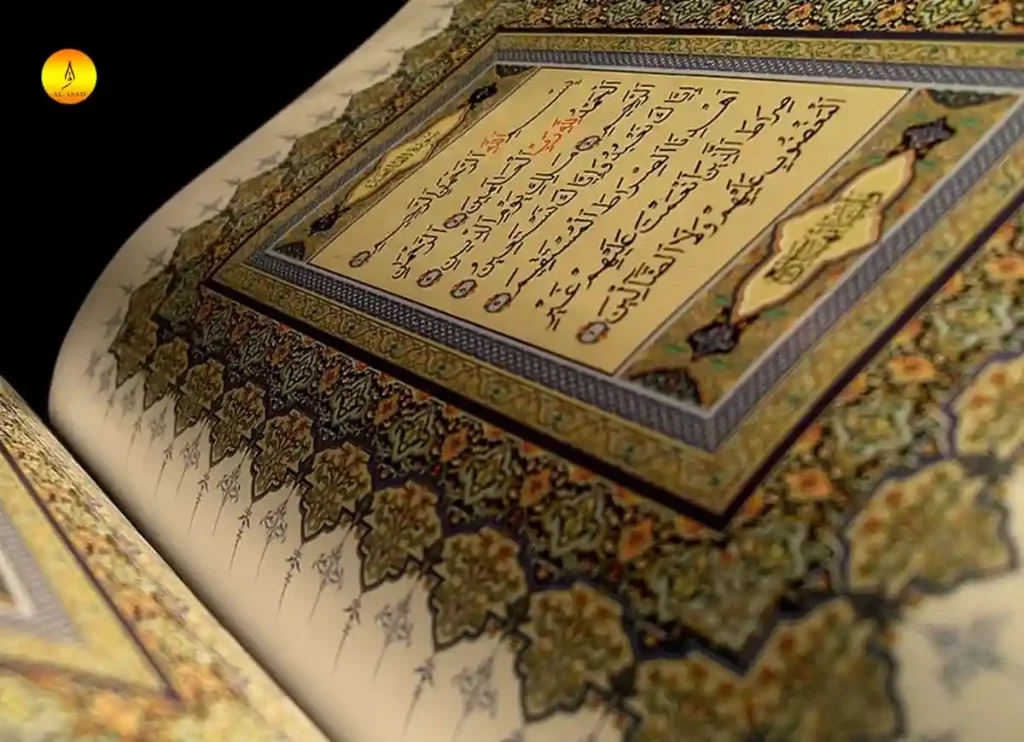 AL-ASAD
بِسْمِ اللَّهِ الرَّحْمَٰنِ الرَّحِيمِ
الْحَمْدُ لِلَّهِ رَبِّ الْعَالَمِينَ الرَّحْمَٰنِ
الرَّحِيمِ مَالِكِ يَوْمِ الدِّينِ
إِيَّاكَ نَعْبُدُ وَإِيَّاكَ نَسْتَعِينُ
اهْدِنَا الصِّرَاطَ الْمُسْتَقِيمَ
صِرَاطَ الَّذِينَ أَنْعَمْتَ عَلَيْهِمْ غَيْرِ
الْمَغْضُوبِ عَلَيْهِمْ وَلَا الضَّالِّينَ